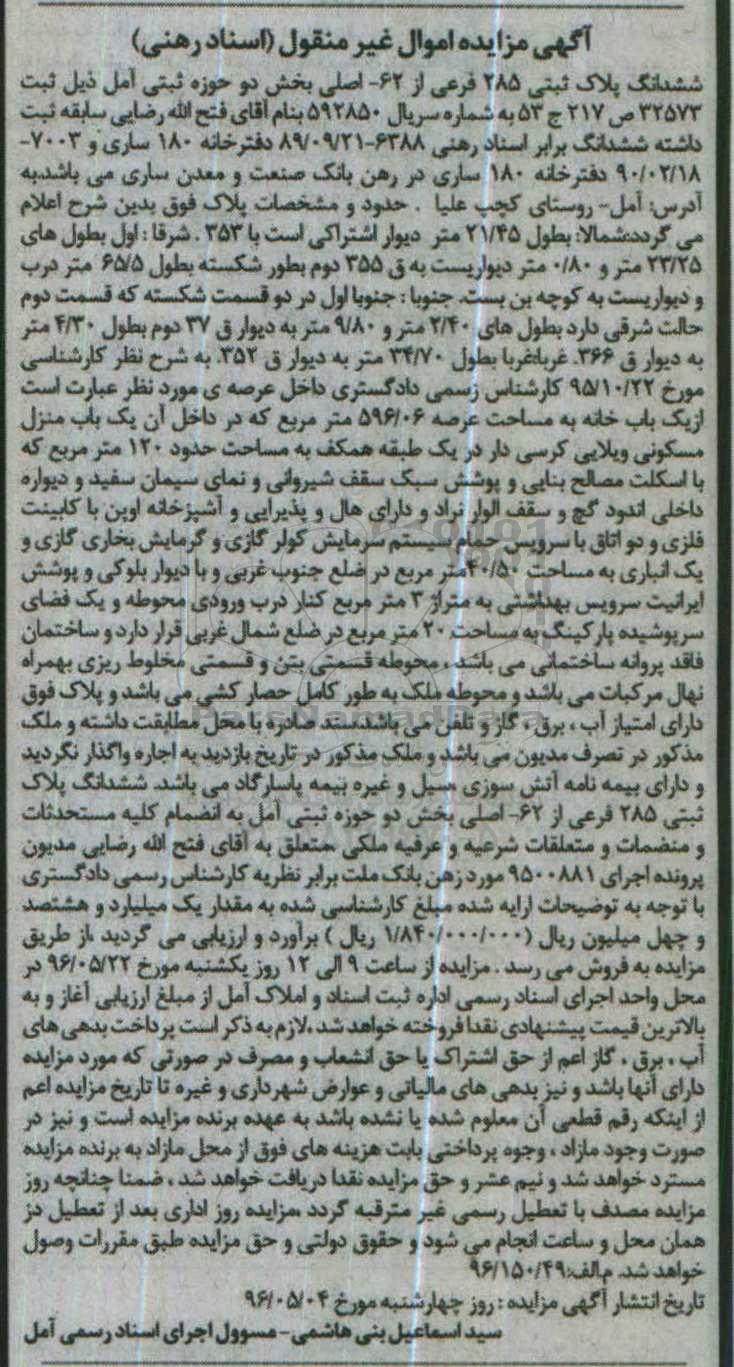 آگهی مزایده اموال غیر منقول (اسناد رهنی)
ششدانگ پلاک ثبتی ۲۸۵ فرعی از ۶۲- اصلی بخش دو حوزه ثبتی آمل ذیل ثبت
۳۲۵۷۳ ص ۲۱۷ ج ۵۳ به شماره سریال ۵۹۲۸۵۰ بنام آقای فتح الله رضایی سابقه ثبت
داشته ششدانگ برابر اسناد رهنی ۶۳۸۸-۸۹/۰۹/۲۱ دفترخانه ۱۸۰ ساری و ۷۰۰۳-
۹۰/۰۲/۱۸ دفترخانه ۱۸۰ ساری در رهن بانک صنعت و معدن ساری می باشد.به
آدرس: آمل- روستای کچب علیا . حدود و مشخصات پلاک فوق بدین شرح اعلام
می گردد:شمالا: بطول ۲۱/۴۵ متر دیوار اشتراکی است با ۳۵۳ . شرقا : اول بطول های
۲۳/۲۵ متر و ۰/۸۰ متر دیواریست به ق ۳۵۵ دوم بطور شکسته بطول ۶۵/۵ متر درب
و دیواریست به کوچه بن بست. جنوبا : جنوبا اول در دو قسمت شکسته که قسمت دوم
حالت شرقی دارد بطول های ۲/۴۰ متر و ۹/۸۰ متر به دیوار ق ۳۷ دوم بطول ۴/۳۰ متر
به دیوار ق ۳۶۶. غربا:غربا بطول ۳۴/۷۰ متر به دیوار ق ۳۵۲. به شرح نظر کارشناسی
مورخ ۹۵/۱۰/۲۲ کارشناس رسمی دادگستری داخل عرصه ی مورد نظر عبارت است
ازیک باب خانه به مساحت عرصه ۵۹۶/۰۶ متر مربع که در داخل آن یک باب منزل
مسکونی ویلایی کرسی دار در یک طبقه همکف به مساحت حدود ۱۲۰ متر مربع که
با اسکلت مصالح بنایی و پوشش سبک سقف شیروانی و نمای سیمان سفید و دیواره
داخلی اندود گچ و سقف الوار نراد و دارای هال و پذیرایی و آشپزخانه اوپن با کابینت
فلزی و دو اتاق با سرویس حمام سیستم سرمایش کولر گازی و گرمایش بخاری گازی و
یک انباری به مساحت ۴۰/۵۰متر مربع در ضلع جنوب غربی و با دیوار بلوکی و پوشش
ایرانیت سرویس بهداشتی به متراژ ۳ متر مربع کنار درب ورودی محوطه و یک فضای
سرپوشیده پارکینگ به مساحت ۲۰ متر مربع در ضلع شمال غربی قرار دارد و ساختمان
فاقد پروانه ساختمانی می باشد ، محوطه قسمتی بتن و قسمتی مخلوط ریزی بهمراه
نهال مرکبات می باشد و محوطه ملک به طور کامل حصار کشی می باشد و پلاک فوق
دارای امتیاز آب ، برق ، گاز و تلفن می باشد.سند صادره با محل مطابقت داشته و ملک
مذکور در تصرف مدیون می باشد و ملک مذکور در تاریخ بازدید به اجاره واگذار نگردید
و دارای بیمه نامه آتش سوزی ،سیل و غیره بیمه پاسارگاد می باشد. ششدانگ پلاک
ثبتی ۲۸۵ فرعی از ۶۲- اصلی بخش دو حوزه ثبتی آمل به انضمام کلیه مستحدثات
و منضمات و متعلقات شرعیه و عرفیه ملکی ،متعلق به آقای فتح الله رضایی مدیون
پرونده اجرای ۹۵۰۰۸۸۱ مورد رهن بانک ملت برابر نظریه کارشناس رسمی دادگستری
با توجه به توضیحات ارایه شده مبلغ کارشناسی شده به مقدار یک میلیارد و هشتصد
و چهل میلیون ریال (۱/۸۴۰/۰۰۰/۰۰۰ ریال ) برآورد و ارزیابی می گردید ،از طریق
مزایده به فروش می رسد . مزایده از ساعت ۹ الی ۱۲ روز یکشنبه مورخ ۹۶/۰۵/۲۲ در
محل واحد اجرای اسناد رسمی اداره ثبت اسناد و املاک آمل از مبلغ ارزیابی آغاز و به
بالاترین قیمت پیشنهادی نقدا فروخته خواهد شد ،لازم به ذکر است پرداخت بدهی های
آب ، برق ، گاز اعم از حق اشتراک یا حق انشعاب و مصرف در صورتی که مورد مزایده
دارای آنها باشد و نیز بدهی های مالیاتی و عوارض شهرداری و غیره تا تاریخ مزایده اعم
از اینکه رقم قطعی آن معلوم شده یا نشده باشد به عهده برنده مزایده است و نیز در
صورت وجود مازاد ، وجوه پرداختی بابت هزینه های فوق از محل مازاد به برنده مزایده
مسترد خواهد شد و نیم عشر و حق مزایده نقدا دریافت خواهد شد ، ضمنا چنانچه روز
مزایده مصدف با تعطیل رسمی غیر مترقبه گردد ،مزایده روز اداری بعد از تعطیل در
همان محل و ساعت انجام می شود و حقوق دولتی و حق مزایده طبق مقررات وصول
خواهد شد. م/الف:۹۶/۱۵۰/۴۹
تاریخ انتشار آگهی مزایده : روز چهارشنبه مورخ ۹۶/۰۵/۰۴
سید اسماعیل بنی هاشمی- مسوول اجرای اسناد رسمی آمل